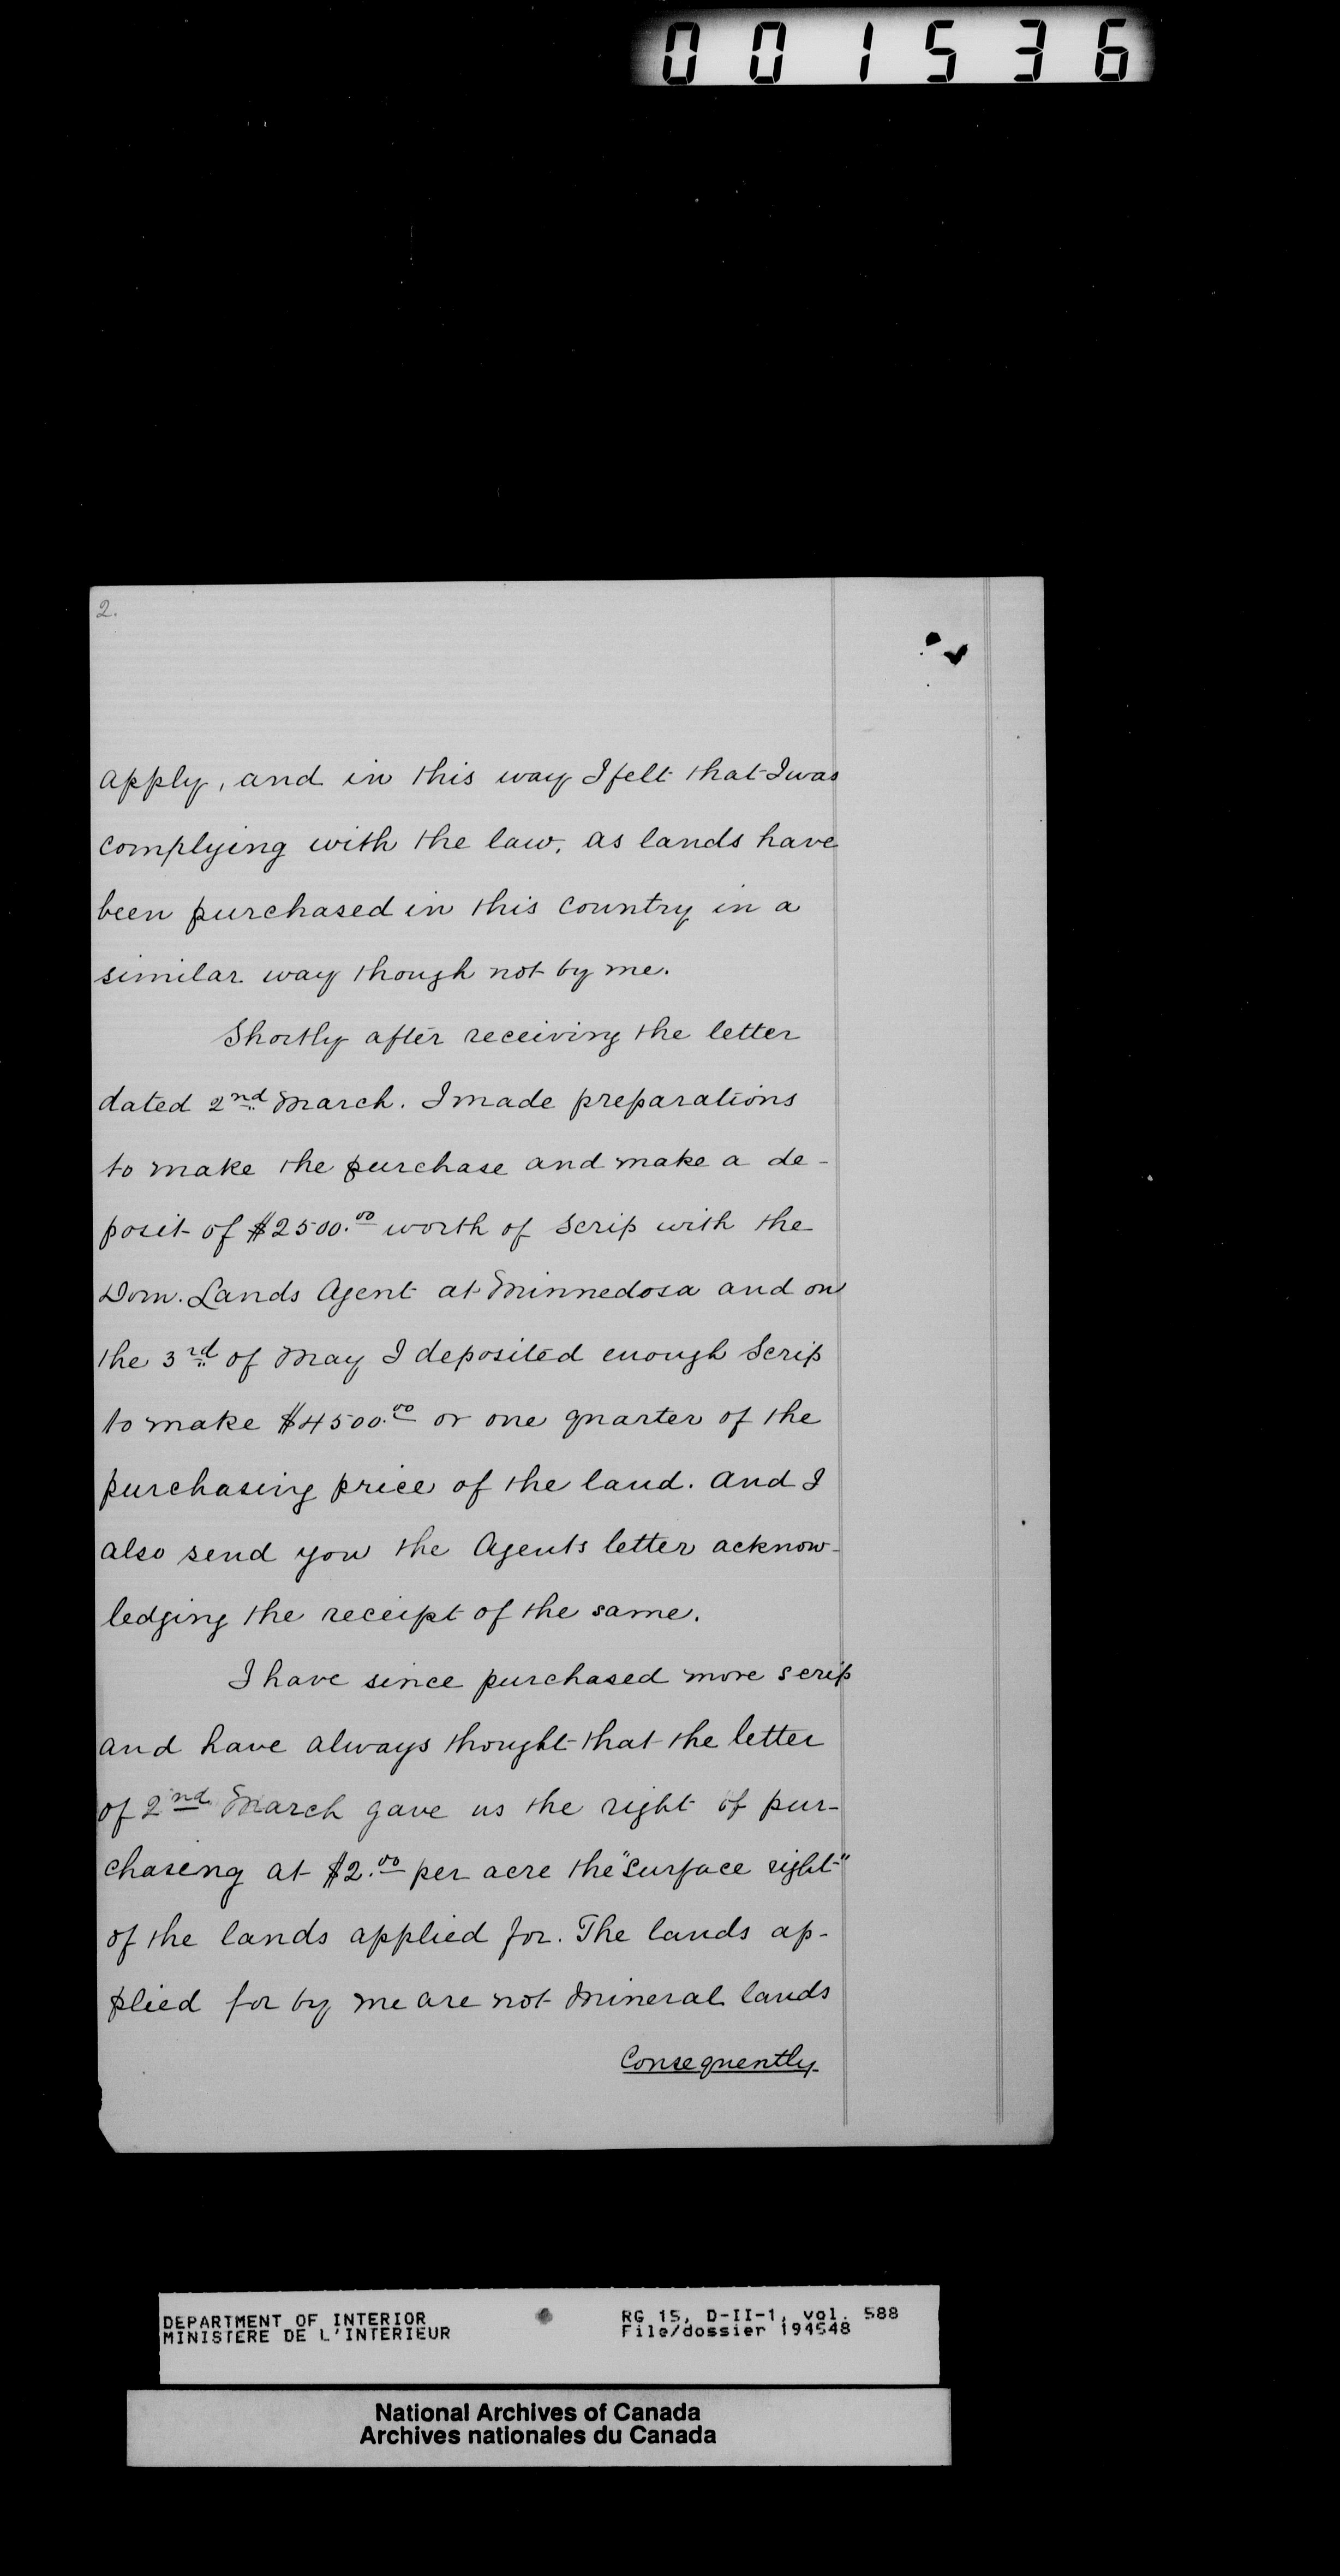 001536
2.
apply, and in this way I felt that I was
complying with the law, as lands have
been purchased in this country in a
similar way though not by me.
Shortly after receiving the letter
dated 2nd March. I made preparations
to make the purchase and make a de-
posit of $2500.00 worth of Scrip with the
Dom. Lands Agent at Minnedosa and on
the 3rd of May I deposited enough Scrip
to make $4500.00 or one quarter of the
purchasing price of the land. And I
also send you the Agents letter acknow-
ledging the receipt of the same.
I have since purchased more scrip
and have always thought that the letter
of 2nd March gave us the right of pur-
chasing at $2.00 per acre the "surface right"
of the lands applied for. The lands ap-
plied for by me are not mineral lands
Consequently
DEPARTMENT OF INTERIOR
MINISTERE DE L'INTERIEUR
RG 15, D-II-1, vol. 588
File/dossier 194548
National Archives of Canada
Archives nationales du Canada